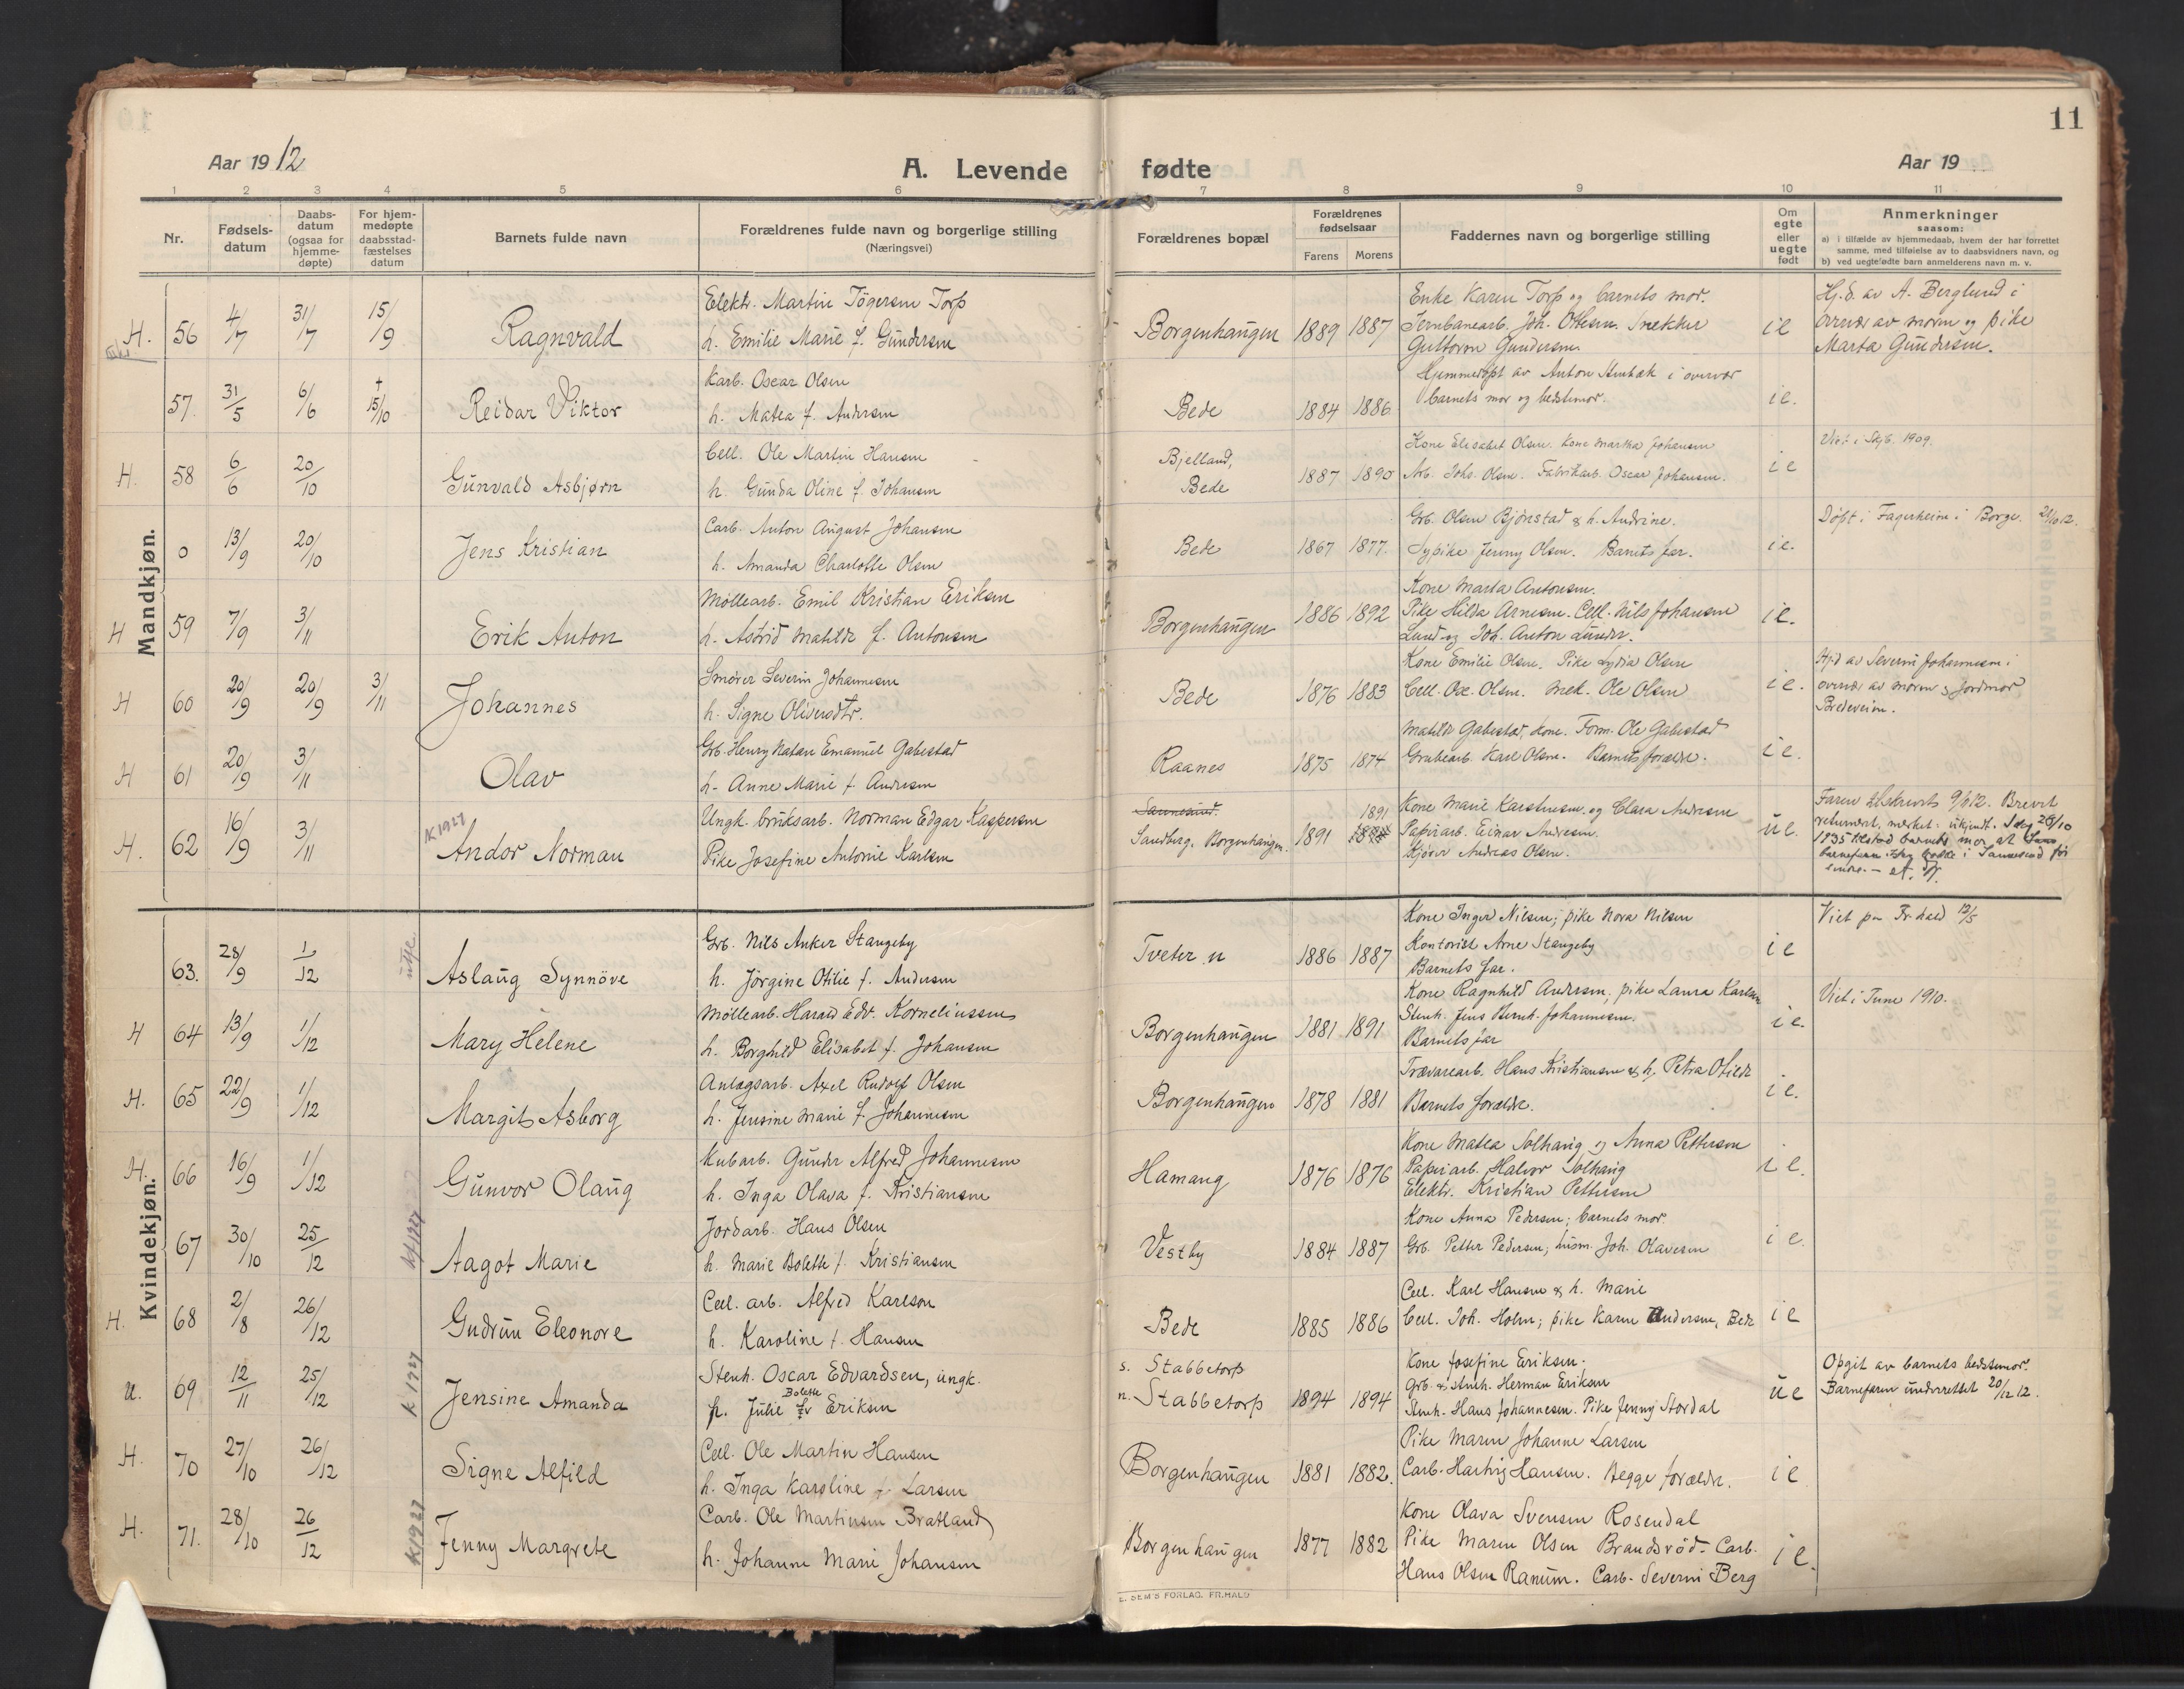 11
Aar 1912
A. Levende fødte
Aar 19
1 2 3 4 5 6 7 8 9 10 11
Nr.
Fødsels-
datum
Daabs-
datum
(ogsaa for
hjemme-
døpte)
For hjem-
medøpte
daabsstad-
fæstelses
datum
Barnets fulde navn
Forældrenes fulde navn og borgerlige stilling
(Næringsvei)
Forældrenes bopæl
Forældrenes
fødselsaar
Farens Morens
Faddernes navn og borgerlige stilling
Om
egte
eller
uegte
født
Anmerkninger
saasom:
a) i tilfælde av hjemmedaab, hvem der har forrettet
samme, med tilføielse av to daabsvidners navn, og
b) ved uegtefødte barn anmelderens navn m. v.
Mandkjøn.
H. 56 4/7 31/7 15/9 Ragnvald
Elektr. Martin Tögersen Torp
h. Emilie Marie f. Gundersen
Borgenhaugen 1889 1887
Enke Karen Torp og barnets mor.
Jernbanearb. Joh. Ottesen. Snekker
Guttorm Gundersen.
ie
Hj.d. av A. Berglund i
overvær av moren og pike
Marta Gundersen.
57. 31/5 6/6 † 15/10 Reidar Viktor
Karb. Oscar Olsen
h. Matea f. Andersen
Bede 1884 1886
Hjemmedøpt av Anton Stenbæk i overvær
barnets mor og bedstemor.
ie.
H. 58 6/6 20/10 Gunvald Asbjørn
Cell. Ole Martin Hansen
h. Gunda Oline f. Johansen
Bjelland,
Bede 1887 1890
Kone Elisabet Olsen. Kone Martha Johansen
Arb. Johs. Olsen. Fabrikarb. Oscar Johansen.
ie
1909.
0 13/9 20/10 Jens Kristian
Carb. Anton August Johansen
h. Amanda Charlotte Olsen
Bede 1867 1877.
Grb. Olsen Bjönstad & h. Andrine.
Sypike Jenny Olsen. Barnets far.
ie.
Døpt i Fagerheim i Borge. 20/10 12.
H 59 7/9 3/11 Erik Anton
Møllearb. Emil Kristian Eriksen
h. Astrid Matilde f. Antonsen
Borgenhaugen 1886 1892
Kone Marta Antonsen.
Pike Hilda Arnesen. Cell. Nils Johansen
Lund og Joh. Anton Lunder.
ie.
H 60 20/9 20/9 3/11 Johannes
Smører Severin Johannesen
h. Signe Oliversdtr.
Bede 1876 1883
Kone Emilie Olsen. Pike Lydia Olsen
Cell. Osc. Olsen. Mek. Ole Olsen
ie.
Hjd av Severin Johannesen i
overvær av moren og jordmor
Bredeveien.
H 61 20/9 3/11 Olav
Grb. Henry Natan Emanuel Gabestad
h. Anne Marie f. Andersen
Raanes 1875 1874
Matilde Gabestad, kone. Form. Ole Gabestad
Grubearb. Karl Olsen. Barnets forældre.
ie.
H. 62 16/9 3/11 K1927 Andor Norman
Ungk. bruksarb. Norman Edgar Kaspersen
Pike Josefine Antonie Karlsen
Sannesund.
Sandberg, Borgenhaugen. 1891 1891
Kone Marie Karstensen og Clara Andersen
Papirarb. Einar Andresen.
Kjører Andreas Olsen.
ue.
Faren tilskrevet 9/6 12. Brevet
returnert, merket: ukjendt. Idag 26/10
1935 tilstod barnets mor at
barnefaren i Sannesund før
Kvindekjøn.
63. 28/9 1/12 utfl. Aslaug Synnöve
Grb. Nils Anker Stangeby
h. Jørgine Otilie f. Andersen
Tveter n 1886 1887
Kone Inger Nilsen; pike Nora Nilsen
Kontorist Arne Stangeby
Barnets far.
ie
Viet paa Fr.hald 12/5
H 64 13/9 1/12 Mary Helene
Møllearb. Harald Edv. Korneliussen
h. Borghild Elisabet f. Johansen
Borgenhaugen 1881 1891
Kone Ragnhild Andersen, pike Laura Karlsen
Stenh. Jens Bernh. Johannesen.
Barnets far
ie.
Viet i Tune 1910.
H. 65 22/9 1/12 Margit Asborg
Anlægsarb. Axel Rudolf Olsen
h. Jensine Marie f. Johannesen
Borgenhaugen 1878 1881
Trævarearb. Hans Kristiansen & h. Petra Otilde
Barnets forældre.
ie.
H. 66 16/9 1/12 Gunvor Olaug
Kubarb. Gunder Alfred Johannesen
h. Inga Olava f. Kristiansen
Hamang 1876 1876
Kone Matea Solhaug og Anna Pettersen
Papirarb. Halvor Solhaug
Elektr. Kristian Pettersen
ie.
67 30/10 25/12 K1927 Aagot Marie
Jordarb. Hans Olsen
h. Marie Bolette f. Kristiansen
Vestby 1884 1887
Kone Anna Pedersen; barnets mor.
Grb. Petter Pedersen; husm. Joh. Olavesen
ie.
H. 68 2/8 26/12 Gudrun Eleonore
Cell. arb. Alfred Karlson
h. Karoline f. Hansen
Bede 1885 1886
Cell. Karl Hansen & h. Marie
Cell. Joh. Holm; pike Karen Andersen, Bede
ie
U. 69 12/11 25/12 K 1927 Jensine Amanda
Stenh. Oscar Edvardsen, ungk.
p. Julie Bolette Eriksen
s. Stabbetorp
n. Stabbetorp 1894 1894
Kone Josefine Eriksen;
Grb. & stenh. Herman Eriksen
Stenh. Hans Johannesen. Pike Jenny Stordal
ue
Opgit av barnets bedstemor.
Barnefaren underrettet 20/12 12.
H. 70 27/10 26/12 Signe Alfild
Cell. Ole Martin Hansen
h. Inga Karoline f. Larsen
Borgenhaugen 1881 1882.
Pike Maren Johanne Larsen
Carb. Hartvig Hansen. Begge forældre.
ie
H. 71. 28/10 26/12 K1927 Jenny Margrete
Carb. Ole Martinsen Bratland
h. Johanne Marie Johansen
Borgenhaugen 1877 1882
Kone Olava Svensen Rosendal
Pike Maren Olsen Brandsröd. Carb.
Hans Olsen Ranum. Carb. Severin Berg
ie.
E. SEM'S FORLAG. FR.HALD